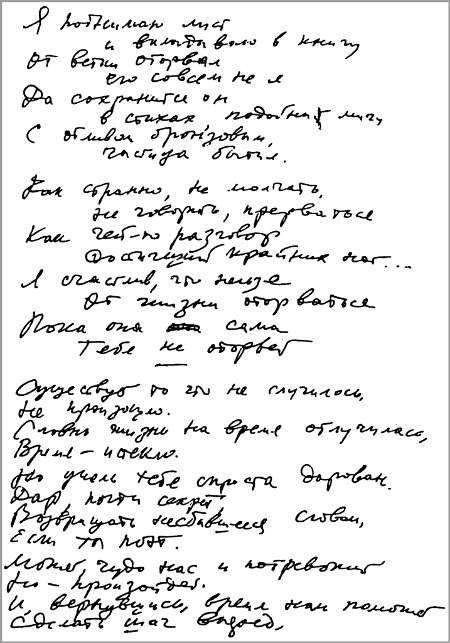 Я поднимаю лист
и вкладываю в книгу
От ветки оторвал
его совсем не я
Да сохранится он
в стихах, подобный мигу
С отливом бронзовым,
частица бытия.
Как странно, не молчать,
не говорить, прерваться
Как чей-то разговор
Достигший крайних нот...
Я счастлив, что нельзя
От жизни оторваться
Пока она сама
Тебя не оторвёт
Существуй то что не случилось,
не произошло.
Словно жизнь на время отлучилась,
Время - истекло.
Но учел тебе спроста дарован.
Дар, почти секрет
Возвращать несбывшееся словом,
Если ты поэт.
Может, чудо нас и потревожит
Но - произойдет.
И, вернувшись, время нам поможет
Сделать шаг вдвоем.